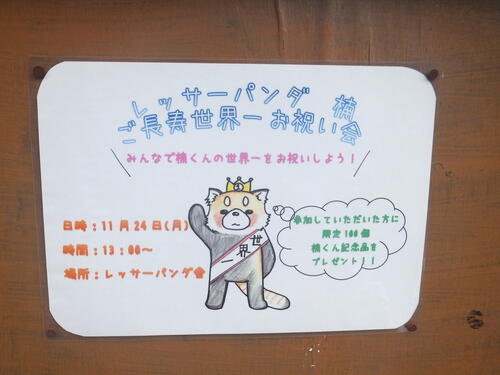 レッサーパンダ 楠
ご長寿世界一お祝い会
みんなで楠くんの世界一をお祝いしよう！
日時：11月24日(月)
時間：13：00～
場所：レッサーパンダ舎
世界一
参加していただいた方に
限定100個
楠くん記念品を
プレゼント！！